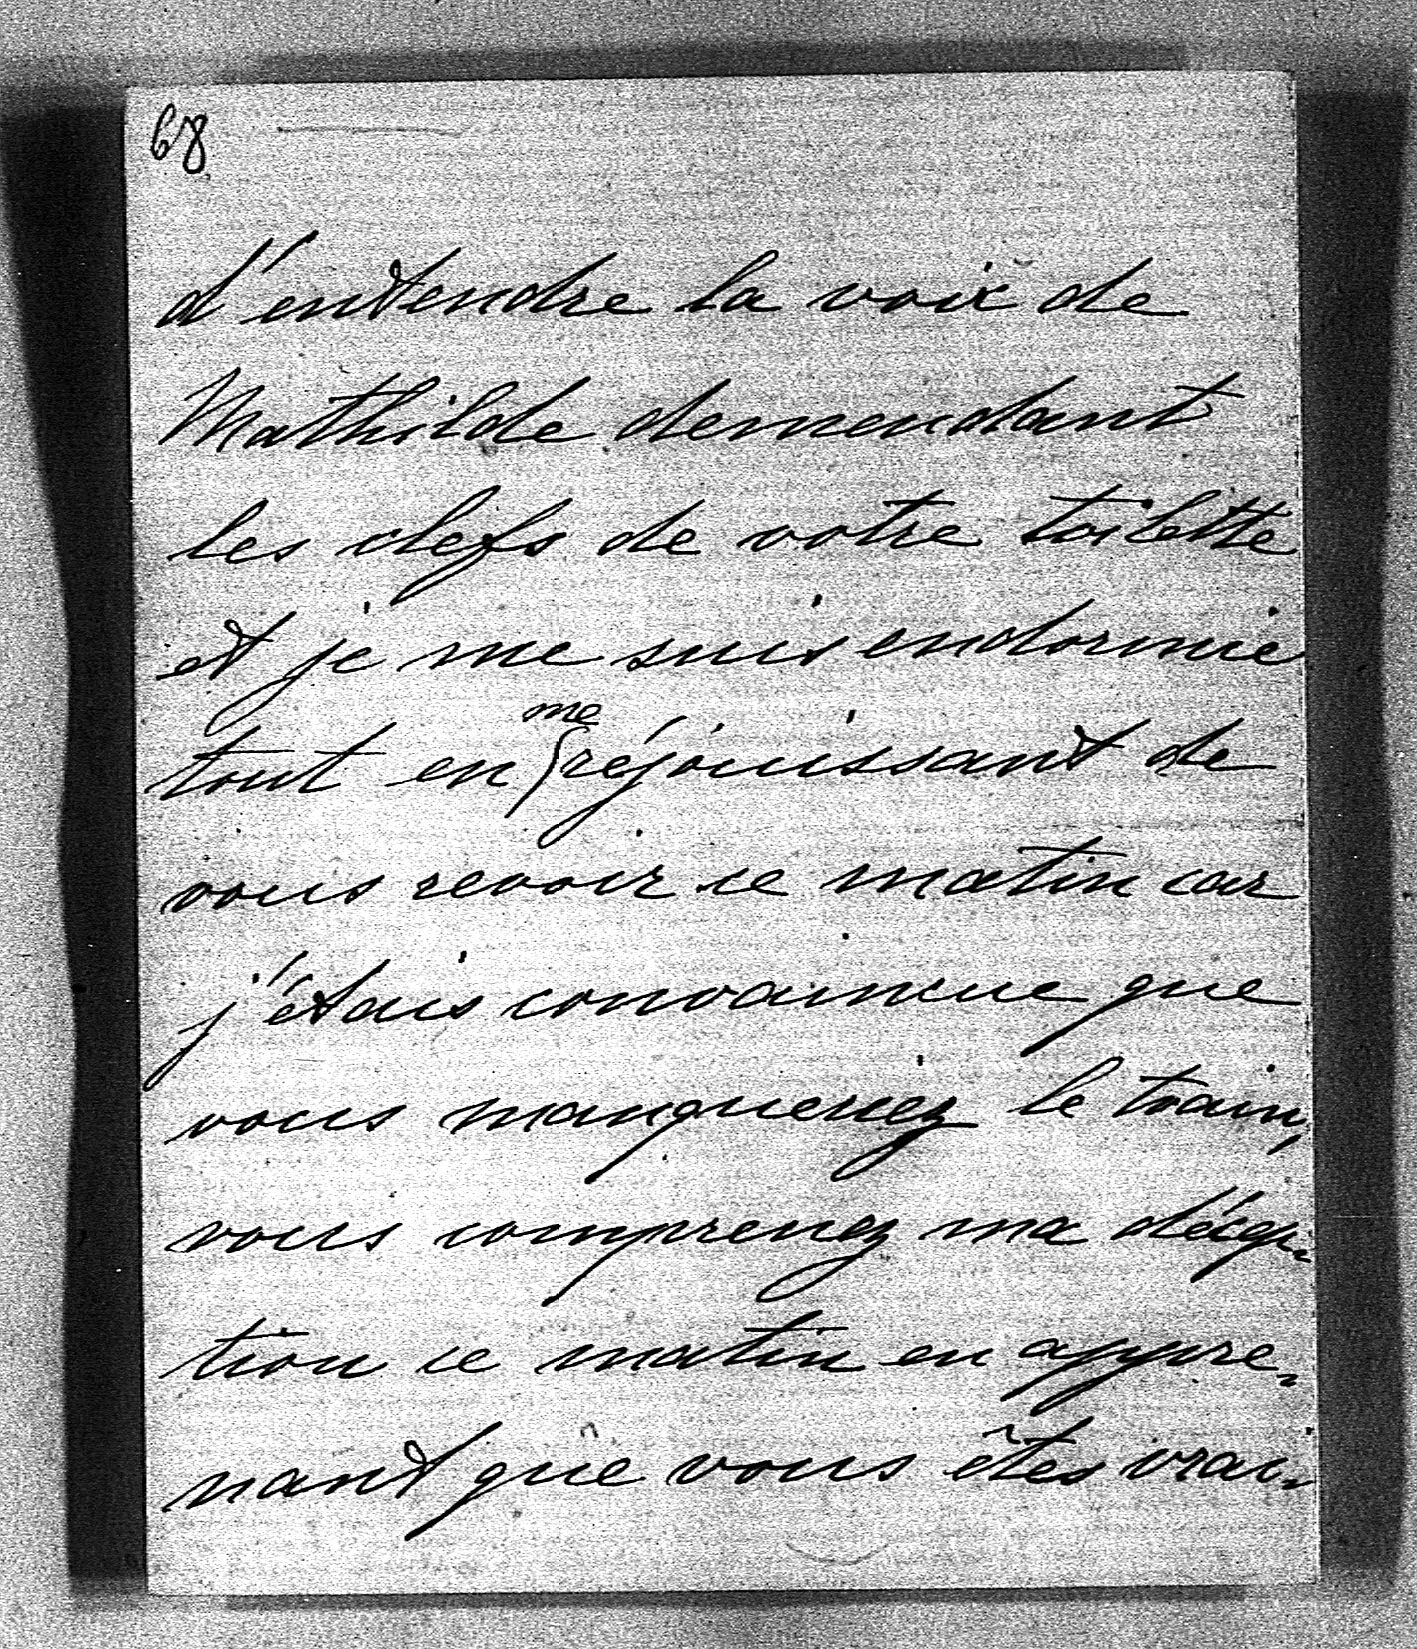 68
d'entendre la voix de
Mathilde demendant
les clefs de votre toilette
et je me suis endormie
tout en me réjouissant de
vous revoir ce matin car
j'étais convaincue que
vous manqueriez le train,
vous comprenez ma décep-
tion ce matin en appre-
nant que vous êtes vrai-